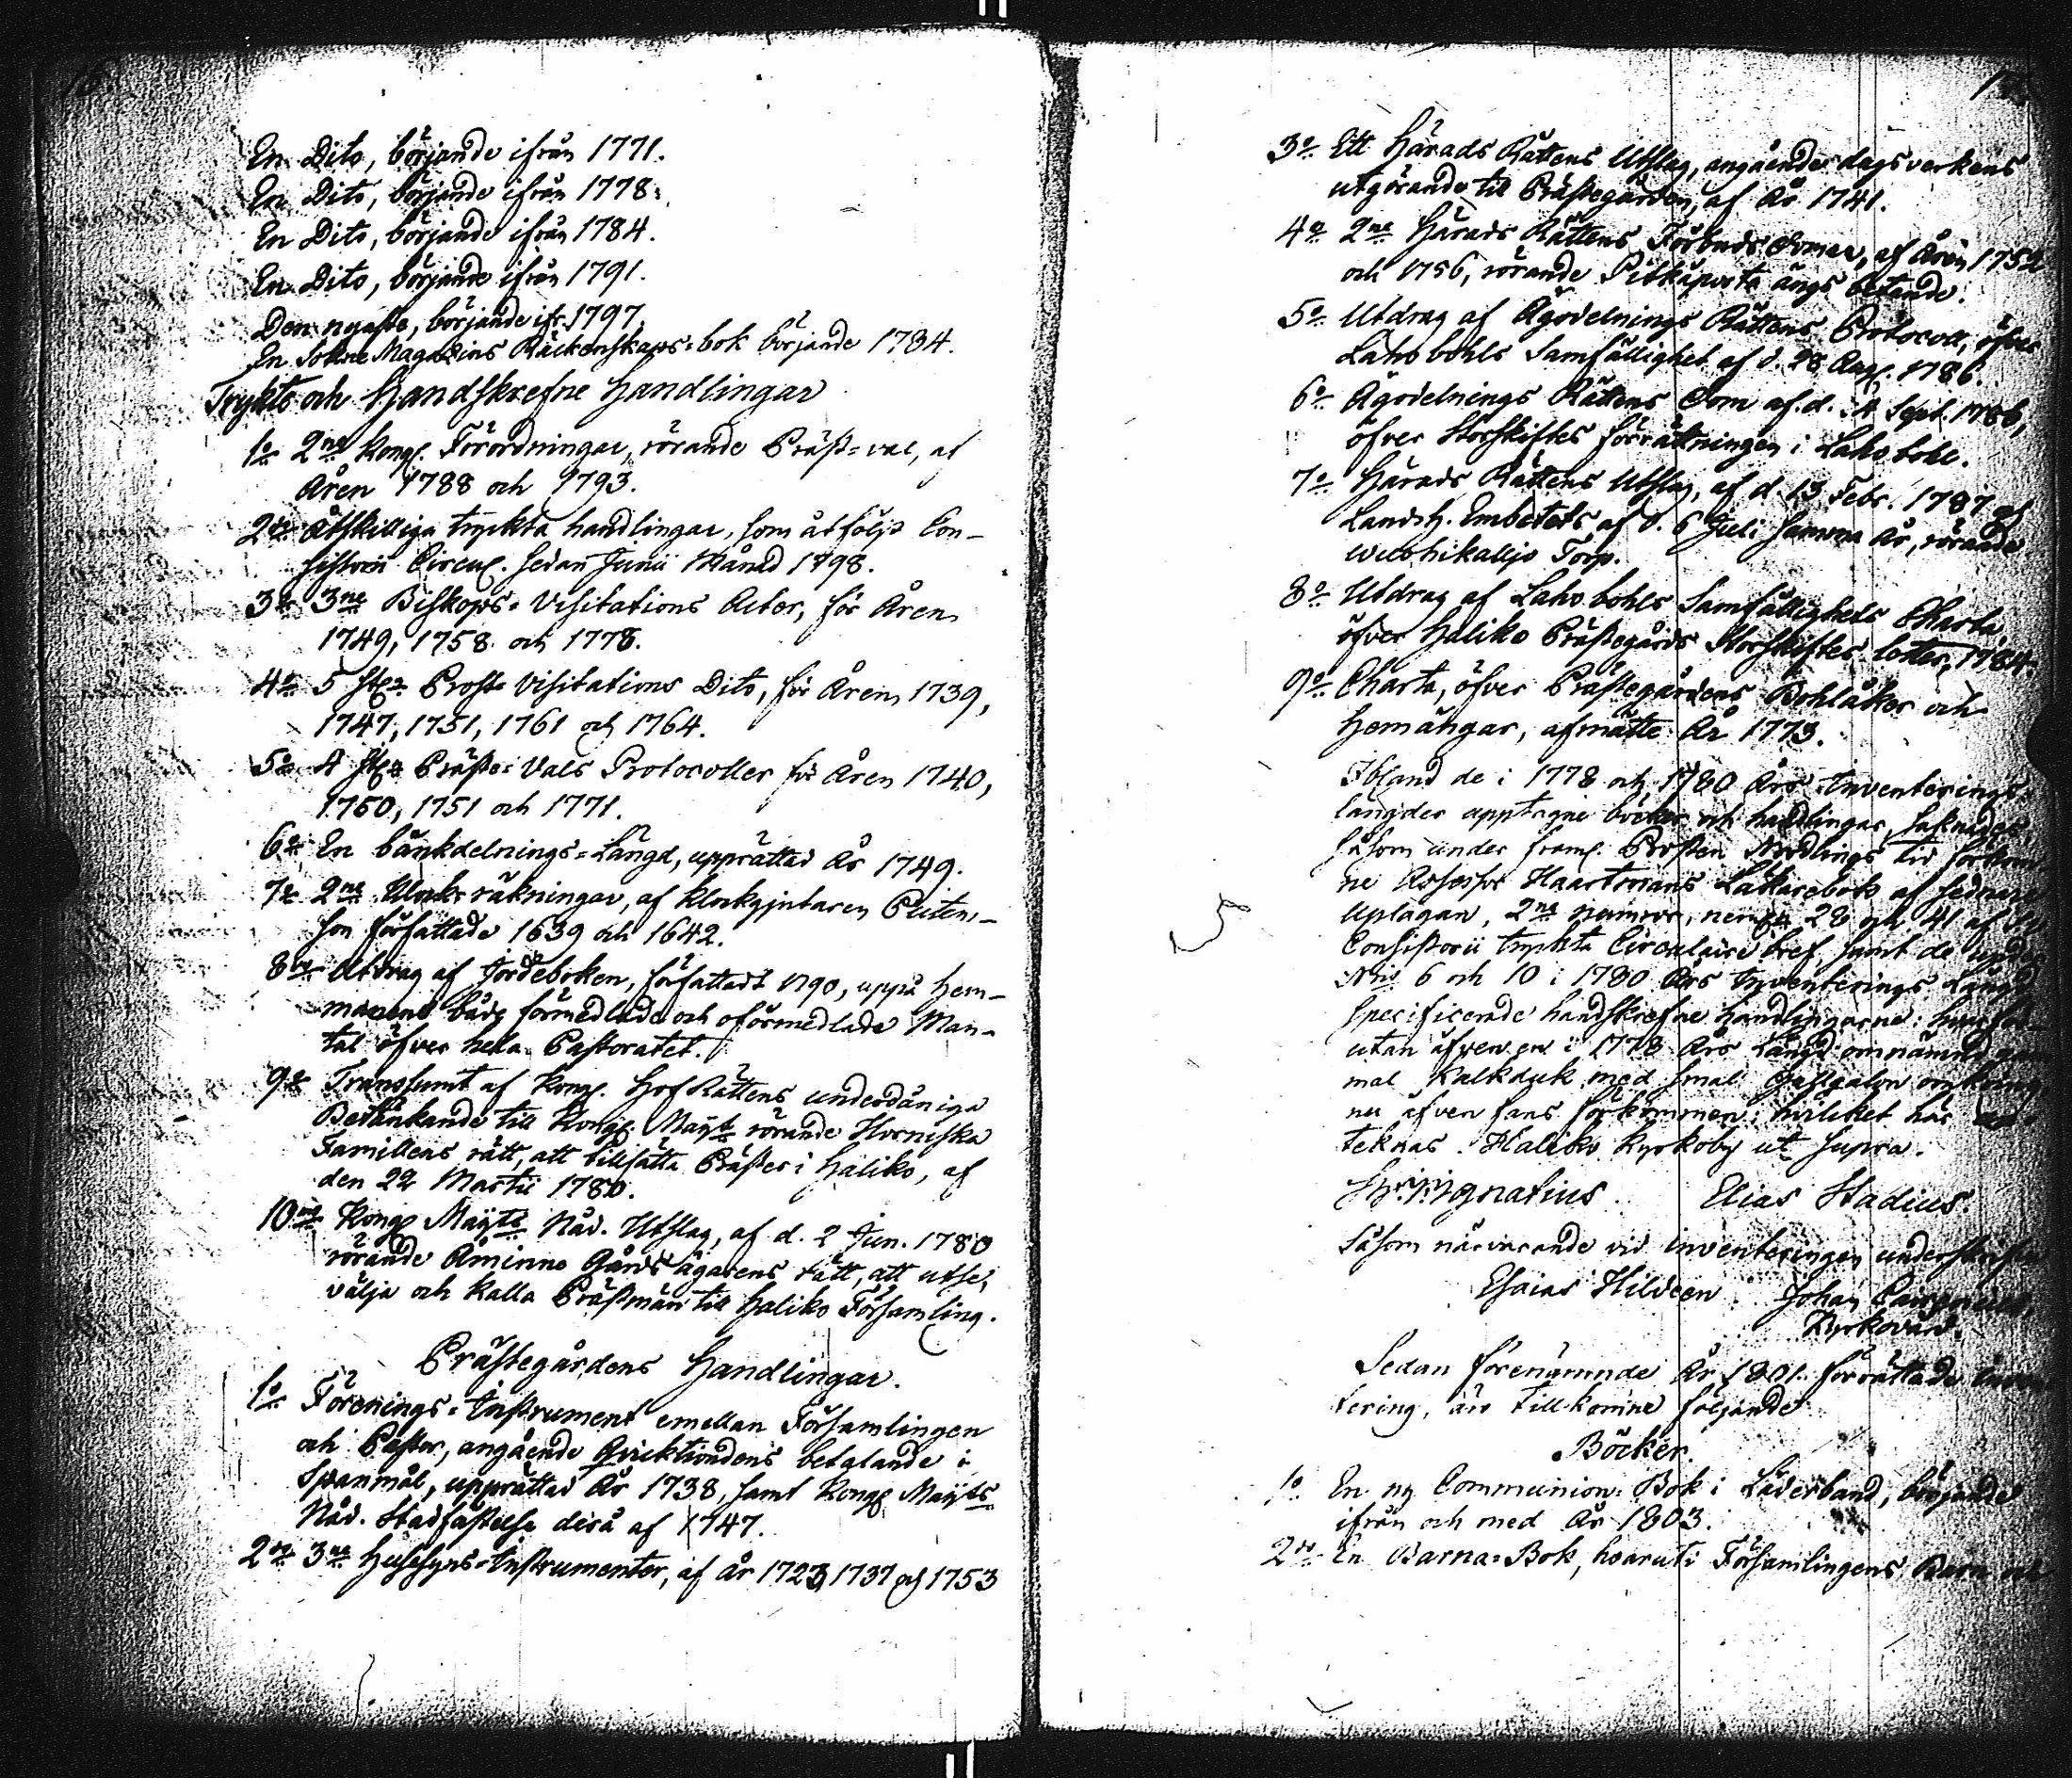 En Dito, börjande ifrån 1771.
En Dito, börjande ifrån 1778.
En Dito, börjande ifrån 1784.
En Dito, börjande ifrån 1791.
Den nyaste, börjande ifr. 1797.
En Sokne Magazins Räckenskaps-bok börjande 1734.
Tryckte och Handskrefne Handlingar
1o 2ne Kongl. Förordningar, rörande Präst-val, af
Åren 1788 och 1793.
2do Åtskilliga tryckta handlingar, som åtföljt Con-
sistorii Circul. sedan Junii Månad 1798.
3o 3ne Biskops-Visitations Acter, för Åren
1749, 1758 och 1778.
4o 5 st. Prosts Visitations Dito, för Åren 1739,
1747, 1751, 1761 och 1764.
5o 4 st. Präste-Vals Protocoller för Åren 1740,
1750, 1751 och 1771.
6o En bänkdelnings-Längd, upprättad År 1749.
7o 2ne Klock-räkningar, af klockgjutaren
son författade 1639 och 1642.
8vo Utdrag af Jordeboken, författadt 1790, uppå Hem-
manens både förmedlade och oförmedlade Man-
tal öfver hela Pastoratet.
9o Transsumt af Kongl. Hof Rättens underdåniga
Betänkande till Kongl. Maijt rörande Hornska
Famillens rätt, att tillsätta Präster i Haliko, af
den 22 Martii 1780.
10mo Kongl Maijts Nåd. Utslag, af d. 2 Jun. 1780
rörande Åminne Gårds ägarens rätt, att utse,
välja och kalla Prästmän till Haliko Församling.
Prästegårdens Handlingar.
1o Förenings-Instrument emellan Församlingen
och Pastor, angående Qvicktiondens betalande i
Spanmål, upprättad År 1738, samt Kongl Maijts
Nåd. Stadfästelse derå af 1747.
2do 3ne Husesyns-Instrumenter, af år 1723, 1737 och 1753
3o Ett Härads Rättens Utslag, angående dagsverkens
utgörande till Prästegården, af År 1741.
4o 2ne Härads Rättens Förbuds Domar, af Åren 1752
och 1756, rörande ängs betande.
5o Utdrag af Ägodelnings Rättens Protocoll, öfver
Lahobohls Samfällighet af d. 28 Aug. 1786.
6o Ägodelnings Rättens Dom af d. 4 Sept. 1786,
öfver Storskiftes förrättningen i Lahobohl.
7o Härads Rättens Utslag, af d 13 Febr. 1787 och
Landsh. Embetets af d. 6 Juli samma År, rörande
Torp.
8o Utdrag af Lahobohls Samfällighets Charta
öfver Haliko Prästegårds Storskiftes lotter, 1784.
9o Charta, öfver Prästegårdens Bohlåker och
Hemängar, afmätte År 1773.
Ibland de i 1778 och 1780 Års Inventerings-
längder upptagne böcker och handlingar, saknades
såsom under framl. Prosten tid förkom-
ne Assessor Haartmans Läkarebok af sednare
Uplagan, 2ne numror, neml. 28 och 41 af
Consistorii tryckta Circulaire bref, samt de under
Nris 6 och 10 i 1780 Års Inventerings Längd
specificerade handskrefne Handlingarne:
utan äfven en i 1778 Års Längd omnämnd gam
mal Kalkduk med smal
nu äfven fans förkommen: hvilket här
teknas. Haliko Kyrkoby ut supra.
Ignatius Elias Stadius.
Såsom närvarande vid inventeringen underskrifva
Esaias Hildeen Johan
Kyrkovärd.
Sedan förenämnde År 1801 förrättade Inven
tering, äro till-komne följande
Böcker.
1o En ny Communion-Bok i Läderband, börjande
ifrån och med År 1803.
2do En Barna-Bok, hvaruti Församlingens Barn och